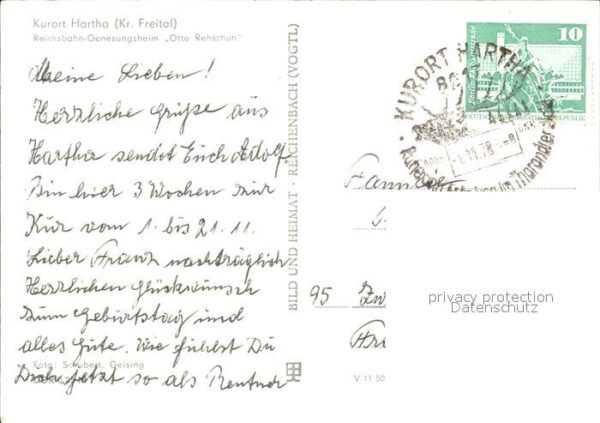 Kurort Hartha (Kr. Freital)
Reichsbahn-Genesungsheim „Otto Rehschuh"
Meine Lieben!
Herzliche Grüße aus
Hartha sendet Euch Adolf
Bin hier 3 Wochen zur
Kur vom 1. bis 21. 11.
Lieber Franz nachträglich
Herzlichen Glückwunsch
zum Geburtstag und
alles Gute. Wie fühlst Du
Dich jetzt so als Rentner
Foto: Schubert, Geising
BILD UND HEIMAT · REICHENBACH (VOGTL)
10
KURORT HARTHA
Familie
95 Zw
privacy protection
Datenschutz
V 11 50